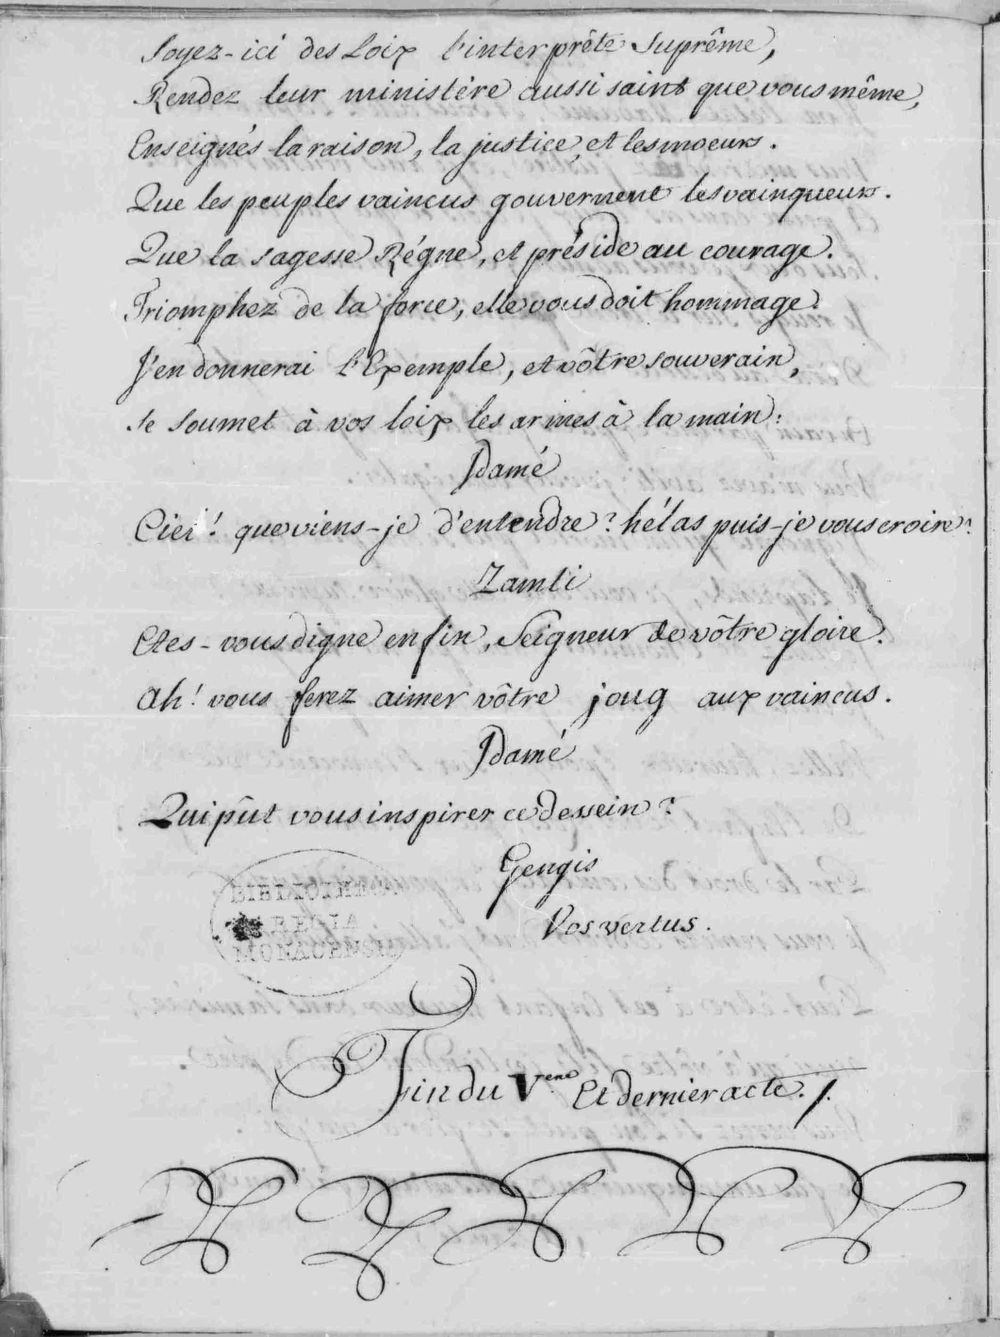 Soyez-ici des Loix l'interprête Suprême,
Rendez leur ministère aussi saint que vous même,
Enseignés la raison, la justice, et les moeurs.
Que les peuples vaincus gouvernent les vainqueurs.
Que la sagesse Régne, et préside au courage.
Triomphez de la force, elle vous doit hommage.
J'en donnerai l'Exemple, et vôtre souverain,
Se soumet à vos loix les armes à la main.
Idamé
Ciel! que viens-je d'entendre? hélas puis-je vous croire?
Zamti
Etes-vous digne enfin, Seigneur de vôtre gloire.
Ah! vous ferez aimer vôtre joug aux vaincus.
Idamé
Qui pût vous inspirer ce dessein?
Gengis
Vos vertus.
BIBLIOTHECA
REGIA
MONACENSIS
Fin du V.eme Et dernier acte ./.